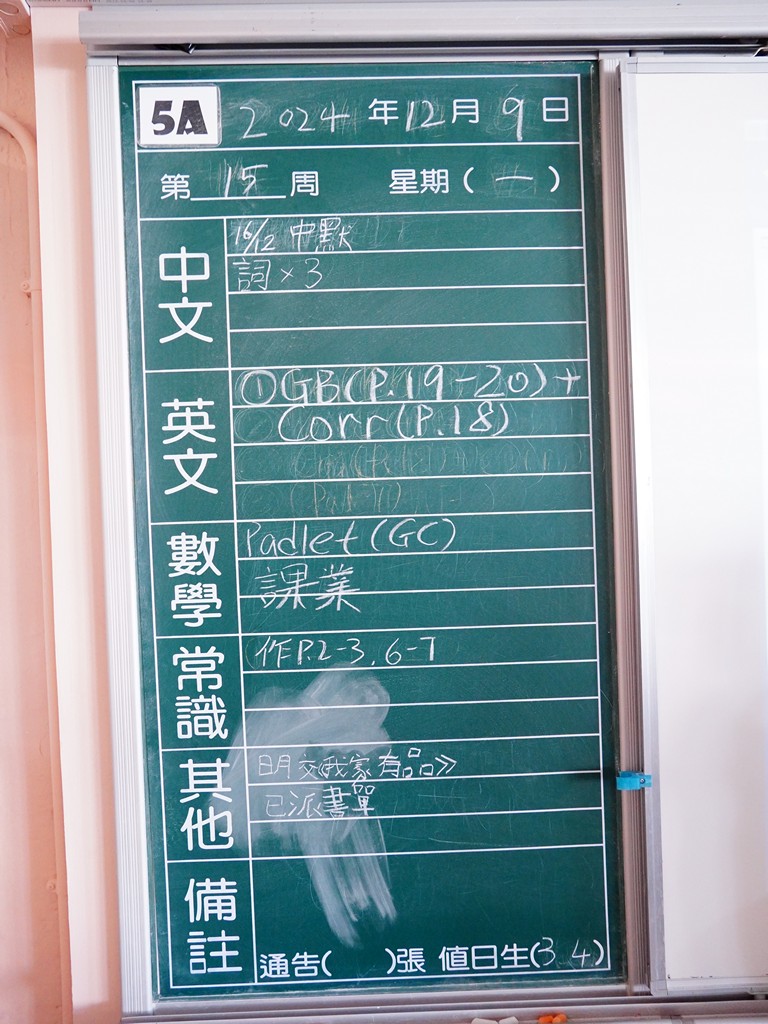 5A 2024年12月9日
第15周 星期(一)
中文
16/12 中默
詞×3
英文
①GB(P.19-20)+
Corr(P.18)
數學
Padlet(GC)
課業
常識
作P.2-3, 6-7
其他
明交我家有品》
已派書單
備註
通告( )張 值日生(3 4)